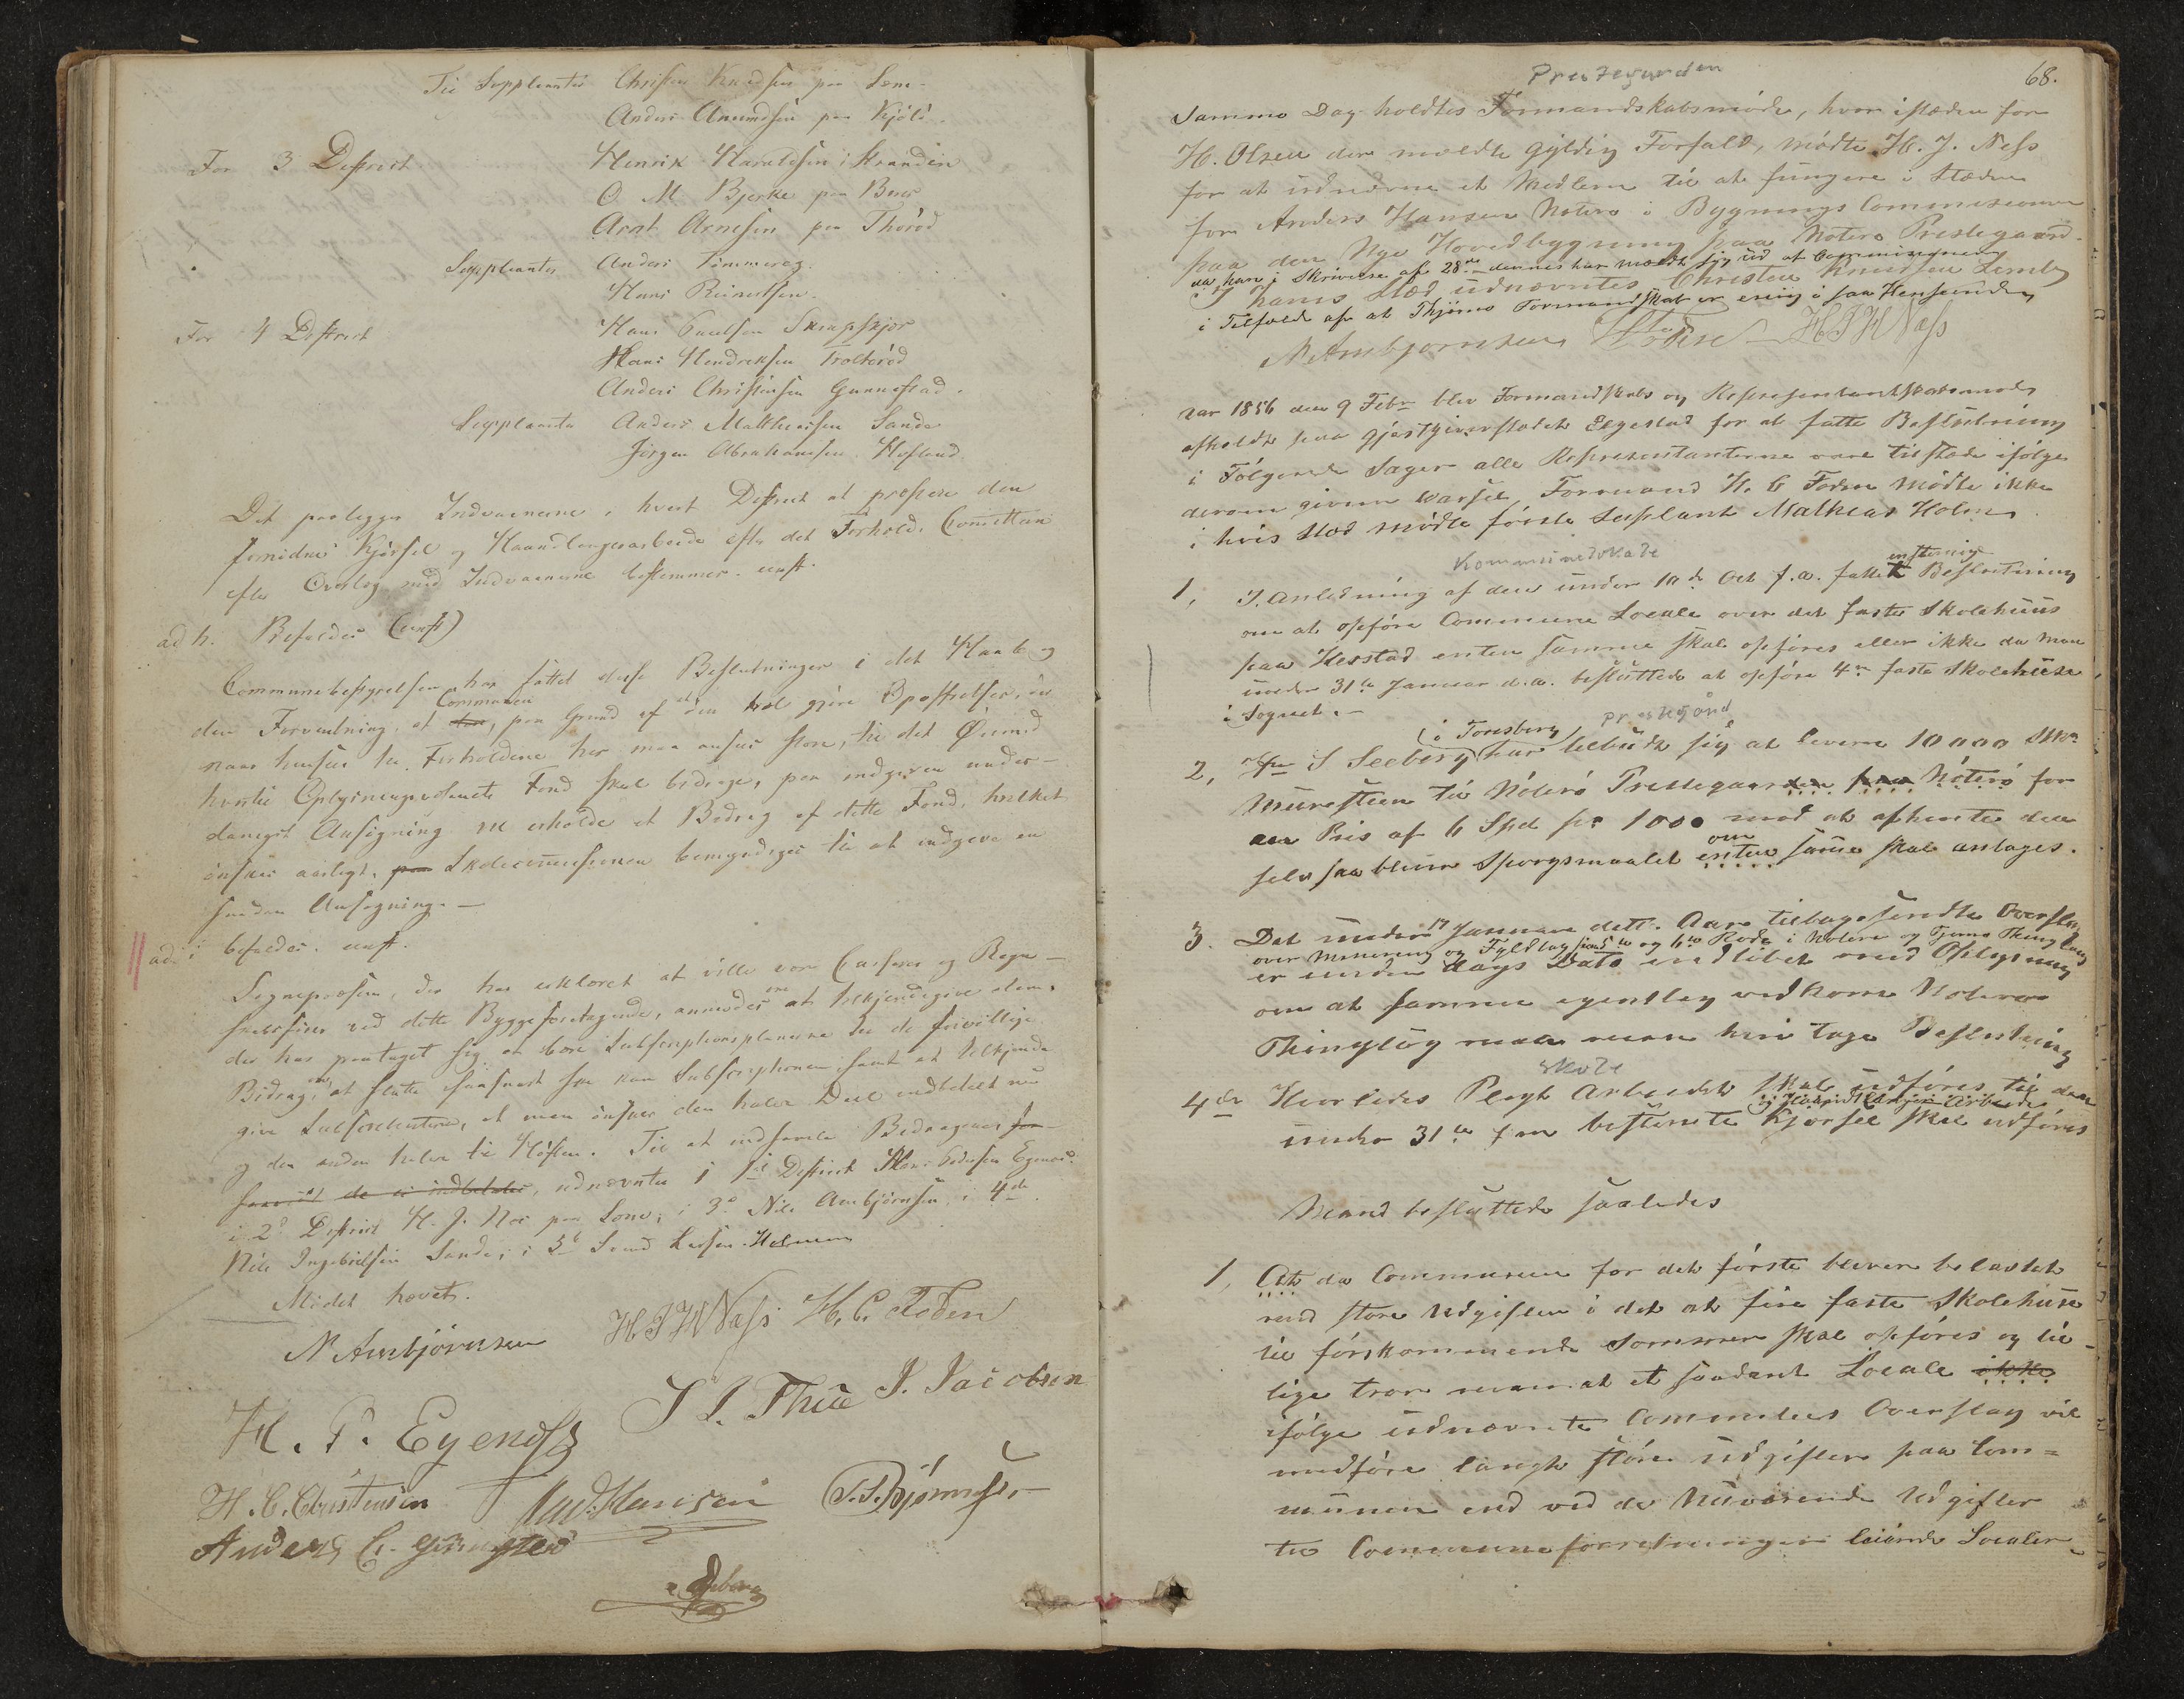 Til Suppleanter Christen Knudsen paa Sem.
Anders Amundsen paa Kjøle
For 3 Destrict Henrik Haraldsen i Stranden
O M Bjerke paa Buer
Arnt Arnesen paa Thorød
Suppleanter Anders Tømmeraas
Hans Reinertsen.
For 4 Destrict Hans Paulsen Skrapskjør
Hans Hendreksen Trolderød
Anders Christensen Gunnestad.
Suppleanter Anders Mathiassen Sande
Jørgen Abrahamsen Hofland
Det paalegges Indvaanerne i hvert Destrict at præstere den
fornødne Kjørsel og Haandlangerarbeide efter det Forhold, Comitteen
efter Overlæg med Indvaanerne bestemmer. eenst.
ad h. Bifaldes (eenst)
Communebestyrelsen har fattet disse Beslutninger i det Haab og
den Forventning, at Communen, paa Grund af de Opofrelser,
naar hensees til Forholdene her maa ansees store, til det Øiemed
hvortil Oplysningsvæsenets Fond skal bidrage, paa indgiven under-
danigst Ansøgning vil erholde et Bidrag af dette Fond, hvilket
ønskes aarligt. Skolecommissionen bemyndiges til at indgive en
saadan Ansøgning. —
ad i bifaldes. eenst.
Sognepræsten, der har erklæret at ville være Casserer og Regn-
skabsfører ved dette Byggeforetagende, anmodes om at tilkjendegive dem,
der har paataget sig at bære Subscriptionsplanerne til de frivillige
Bidrag, om at slutte saasnart som kan Subscriptionen samt at tilkjende
give Subscribenterne, at man ønsker den halve Deel indbetalt nu
og den anden halve til Høsten. Til at indsamle Bidragene
de er indbetalte, udnævntes i 1ste Destrict Hans Pedersen Egenes.
i 2det Destrict H. J. Næs paa Sem; i 3de Nils Ambjørnsen i 4de
Nils Ingebretsen Sande; i 5te Lars Larsen Holmen
Mødet hævet.
N Ambjørnsen H J H Næss H. C. Foden
J L. Thue J. Jacobsen
H. P. Eyenæss
H. C. Christensen Hansen
Anders C. Gunnestad
Seeberg
Prestegarden
68.
Samme Dag holdtes Formandskabsmøde, hvor istæden for
H. Olsen der meldte gyldig Forfald, mødte H. J. Ness
for at udnævne et Medlem til at fungere i Stæden
for Anders Hansen Nøterø i Bygnings Commissionen
paa den Nye Hovedbygning paa Nøterø Prestegaard.
da han i Skrivelse af 28de dennes har meldt sig ud af Commissionen
I hans Sted udnævntes Christen Knudsen Semb
i Tilfælde af at Thjømø Formandskab er enig i saa Henseende
N Ambjørnsen H J H Næss
Aar 1856 den 9 Febr blev Formandskabs og Repræsentantskabsmøde
afholdt paa Gjæstgiverstedet Elgestad for at fatte Beslutning
i Følgende Sager alle Repræsentanterne vare tilstæde ifølge
derom given Varsel, Formand H. C Foden mødte ikke
i hvis Sted mødte første Suplant Mathias Holmen
Kommunelokale
1, I Anledning af den under 10de Oct f. A. fattet enstemig Beslutning
om at opføre Commune Locale over det faste Skolehuus
paa Herstad enten samme skal opføres eller ikke da man
under 31te Januar d.A. besluttede at opføre 4re faste Skolehuse
i Sognet. —
prestegård
2, S Seeberg (i Tonsberg) har tilbudt sig at levere 10000 Stk
Muresteen til Nøterø Prestegaarden paa Nøterø for
en Pris af 6 Spd pr 1000 mod at afhente den
selv saa bliver Spørgsmaalet enten om samme skal antages.
3. Det under 17 Januar dette Aar tilbagesendte Overslag
over Minering og Fyldlægning ... og 6te Rode i Nøterø og Tjømø Thinglaug
er under Dags Dato indløbet med Oplysning
om at samme egentlig vedkom Nøterø
Thinglaug maa man hvi tage Beslutning
skole
4de Hvorledes Plegt Arbeidet skal udføres til den
og Haandlanger Arbeide
under 31te f m bestemte Kjørsel skal udføres
Mand besluttede saaledes
1, At da Communen for det første bliver belastet
med store Udgifter i det at fire faste Skolehuse
til førskommende Sommer skal opføres og til-
lige troer man at et saadant Locale ikke
ifølge udnævnte Commitees Overslag vil
medføre langt større Udgifter paa Com=
munen end ved de Nuværende Udgifter
til Communeforretninger leiende Localer